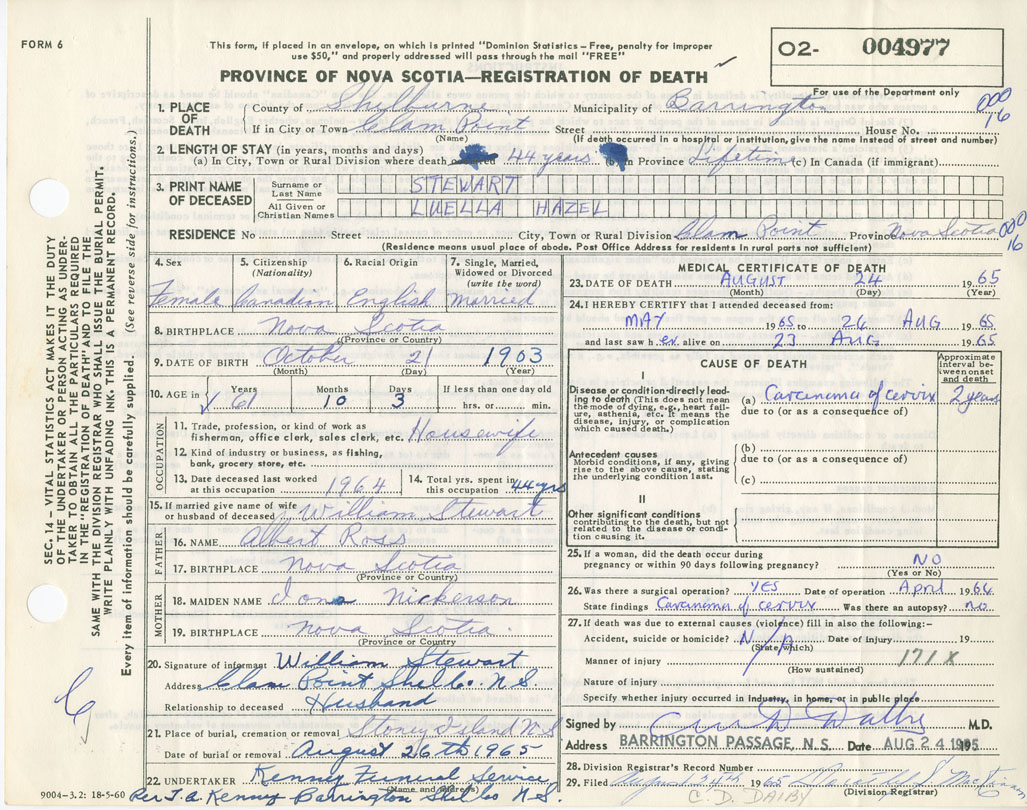 FORM 6
This form, if placed in an envelope, on which is printed "Dominion Statistics – Free, penalty for improper
use $50," and properly addressed will pass through the mail "FREE"
O2- 004977
PROVINCE OF NOVA SCOTIA—REGISTRATION OF DEATH
For use of the Department only
SEC. 14 – VITAL STATISTICS ACT MAKES IT THE DUTY
OF THE UNDERTAKER OR PERSON ACTING AS UNDER-
TAKER TO OBTAIN ALL THE PARTICULARS REQUIRED
IN THE "REGISTRATION OF DEATH" AND TO FILE THE
SAME WITH THE DIVISION REGISTRAR WHO SHALL ISSUE THE BURIAL PERMIT.
WRITE PLAINLY WITH UNFADING INK. THIS IS A PERMANENT RECORD.
Every item of information should be carefully supplied. (See reverse side for instructions.)
1. PLACE OF DEATH
County of Shelburne Municipality of Barrington
000 16
If in City or Town Clam Point Street House No.
(Name) (If death occurred in a hospital or institution, give the name instead of street and number)
2. LENGTH OF STAY (in years, months and days)
(a) In City, Town or Rural Division where death 44 years (b) in Province Lifetime (c) In Canada (if immigrant)
3. PRINT NAME OF DECEASED
Surname or Last Name STEWART
All Given or Christian Names LUELLA HAZEL
RESIDENCE No Street City, Town or Rural Division Clam Point Province Nova Scotia
000 16
(Residence means usual place of abode. Post Office Address for residents in rural parts not sufficient)
4. Sex 5. Citizenship (Nationality) 6. Racial Origin 7. Single, Married, Widowed or Divorced (write the word)
Female Canadian English Married
8. BIRTHPLACE Nova Scotia
(Province or Country)
9. DATE OF BIRTH October 21 1903
(Month) (Day) (Year)
10. AGE in Years Months Days If less than one day old
61 10 3 hrs. or min.
OCCUPATION
11. Trade, profession, or kind of work as
fisherman, office clerk, sales clerk, etc. Housewife
12. Kind of industry or business, as fishing,
bank, grocery store, etc.
13. Date deceased last worked at this occupation 1964 14. Total yrs. spent in this occupation 44 yrs
15. If married give name of wife or husband of deceased William Stewart
FATHER
16. NAME Albert Ross
17. BIRTHPLACE Nova Scotia
(Province or Country)
MOTHER
18. MAIDEN NAME Iona Nickerson
19. BIRTHPLACE Nova Scotia
(Province or Country
20. Signature of informant William Stewart
Address Clam Point Shelb. Co. N.S.
Relationship to deceased Husband
21. Place of burial, cremation or removal Stoney Island N S
Date of burial or removal August 26th 1965
22. UNDERTAKER Kenney Funeral Service
(Name and address)
9004-3.2: 18-5-60 Per J. A. Kenney Barrington Shelb Co N.S.
MEDICAL CERTIFICATE OF DEATH
23. DATE OF DEATH AUGUST 24 1965
(Month) (Day) (Year)
24. I HEREBY CERTIFY that I attended deceased from:
MAY 1965 to 24 AUG 1965
and last saw h er alive on 23 AUG 1965
CAUSE OF DEATH
Approximate interval between onset and death
I
Disease or condition directly leading to death (This does not mean the mode of dying, e.g., heart failure, asthenia, etc. It means the disease, injury, or complication which caused death.)
(a) Carcinoma of cervix 2 years
due to (or as a consequence of)
Antecedent causes
Morbid conditions, if any, giving rise to the above cause, stating the underlying condition last.
(b)
due to (or as a consequence of)
(c)
II
Other significant conditions
contributing to the death, but not related to the disease or condition causing it.
25. If a woman, did the death occur during
pregnancy or within 90 days following pregnancy? NO
(Yes or No)
26. Was there a surgical operation? YES Date of operation April 1964
State findings Carcinoma of cervix Was there an autopsy? no
27. If death was due to external causes (violence) fill in also the following:–
Accident, suicide or homicide? N/A Date of injury 19
(State which)
Manner of injury 171 X
(How sustained)
Nature of injury
Specify whether injury occurred in industry, in home, or in public place
Signed by M.D.
Address BARRINGTON PASSAGE, N.S. Date AUG 24 1965
28. Division Registrar's Record Number
29. Filed August 24th 1965
(Division Registrar)
C. D. DALBY